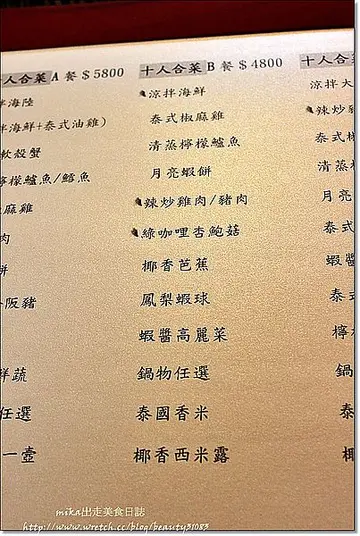 人合菜 A 餐 $5800
拌海陸
海鮮+泰式油雞)
軟殼蟹
檸檬鱸魚/鱈魚
麻雞
肉
餅
阪豬
鮮蔬
任選
一壺
十人合菜 B 餐 $4800
涼拌海鮮
泰式椒麻雞
清蒸檸檬鱸魚
月亮蝦餅
辣炒雞肉/豬肉
綠咖哩杏鮑菇
椰香芭蕉
鳳梨蝦球
蝦醬高麗菜
鍋物任選
泰國香米
椰香西米露
十人合
涼拌大
辣炒
泰式
清蒸
月亮
泰式
蝦醬
泰式
檸
鍋
泰
椰
mika出走美食日誌
http://www.wretch.cc/blog/beauty31083